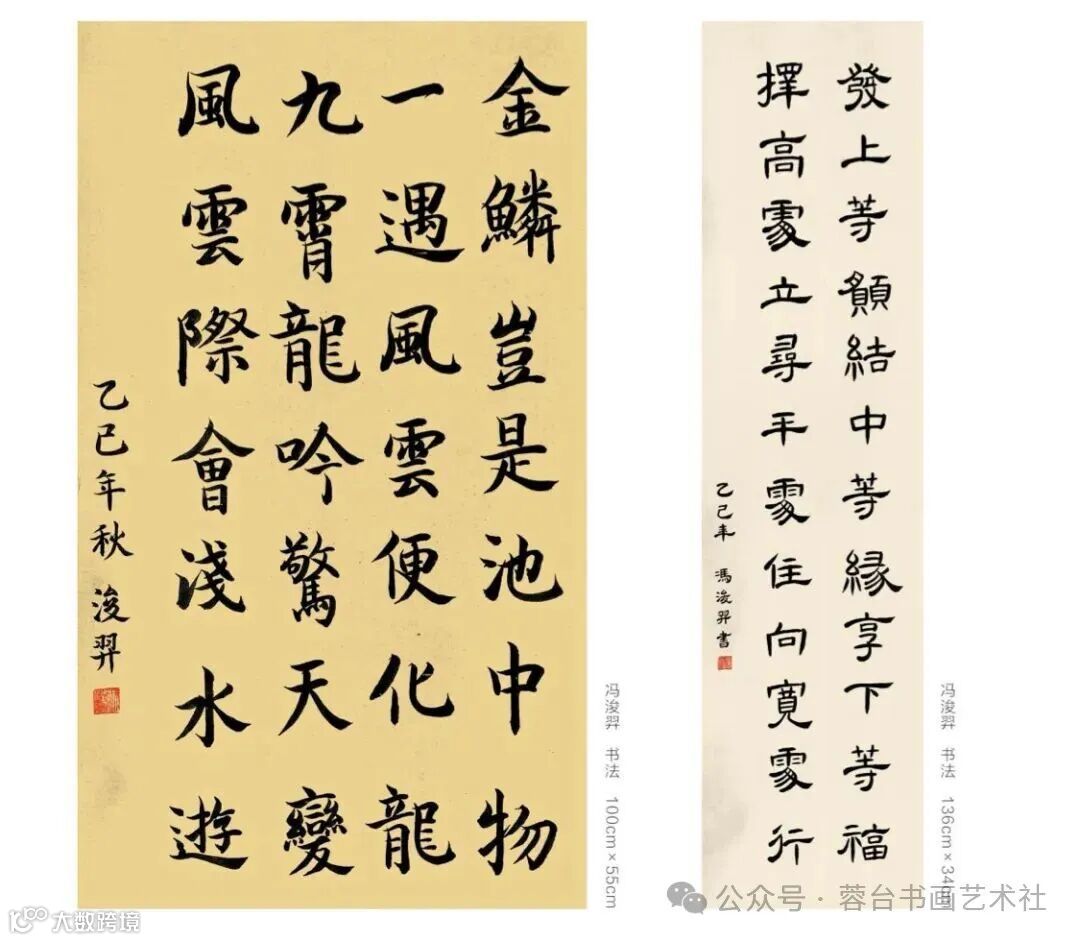 金鱗豈是池中物
一遇風雲便化龍
九霄龍吟驚天變
風雲際會淺水遊
乙巳年秋 浚羿
冯浚羿 书法 100cm×55cm
發上等願結中等緣享下等福
擇高處立尋平處住向寬處行
乙巳年 馮浚羿書
冯浚羿 书法 136cm×34cm
公众号·蓉台书画艺术社
大数跨境